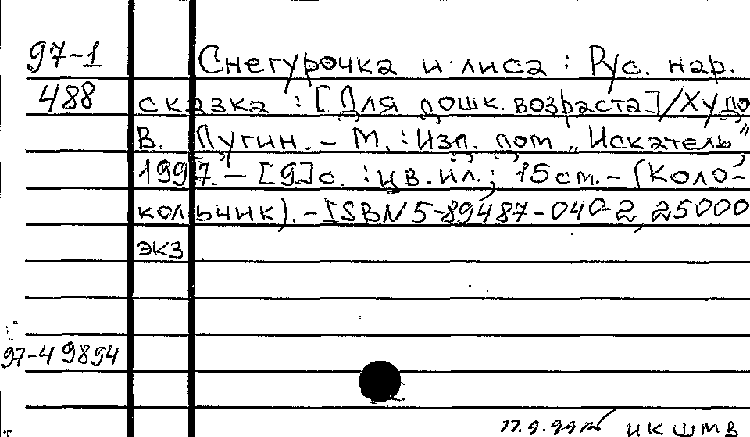 97-1 Снегурочка и лиса : Рус. нар.
488 сказка : [Для дошк. возраста] / Худо
В. Лугин. – М. : Изд. дом „Искатель"
1997. – [9] с. : цв. ил.; 15 cm. – (Коло-
кольчик). – ISBN 5-89487-040-2, 25000
экз
97-49894